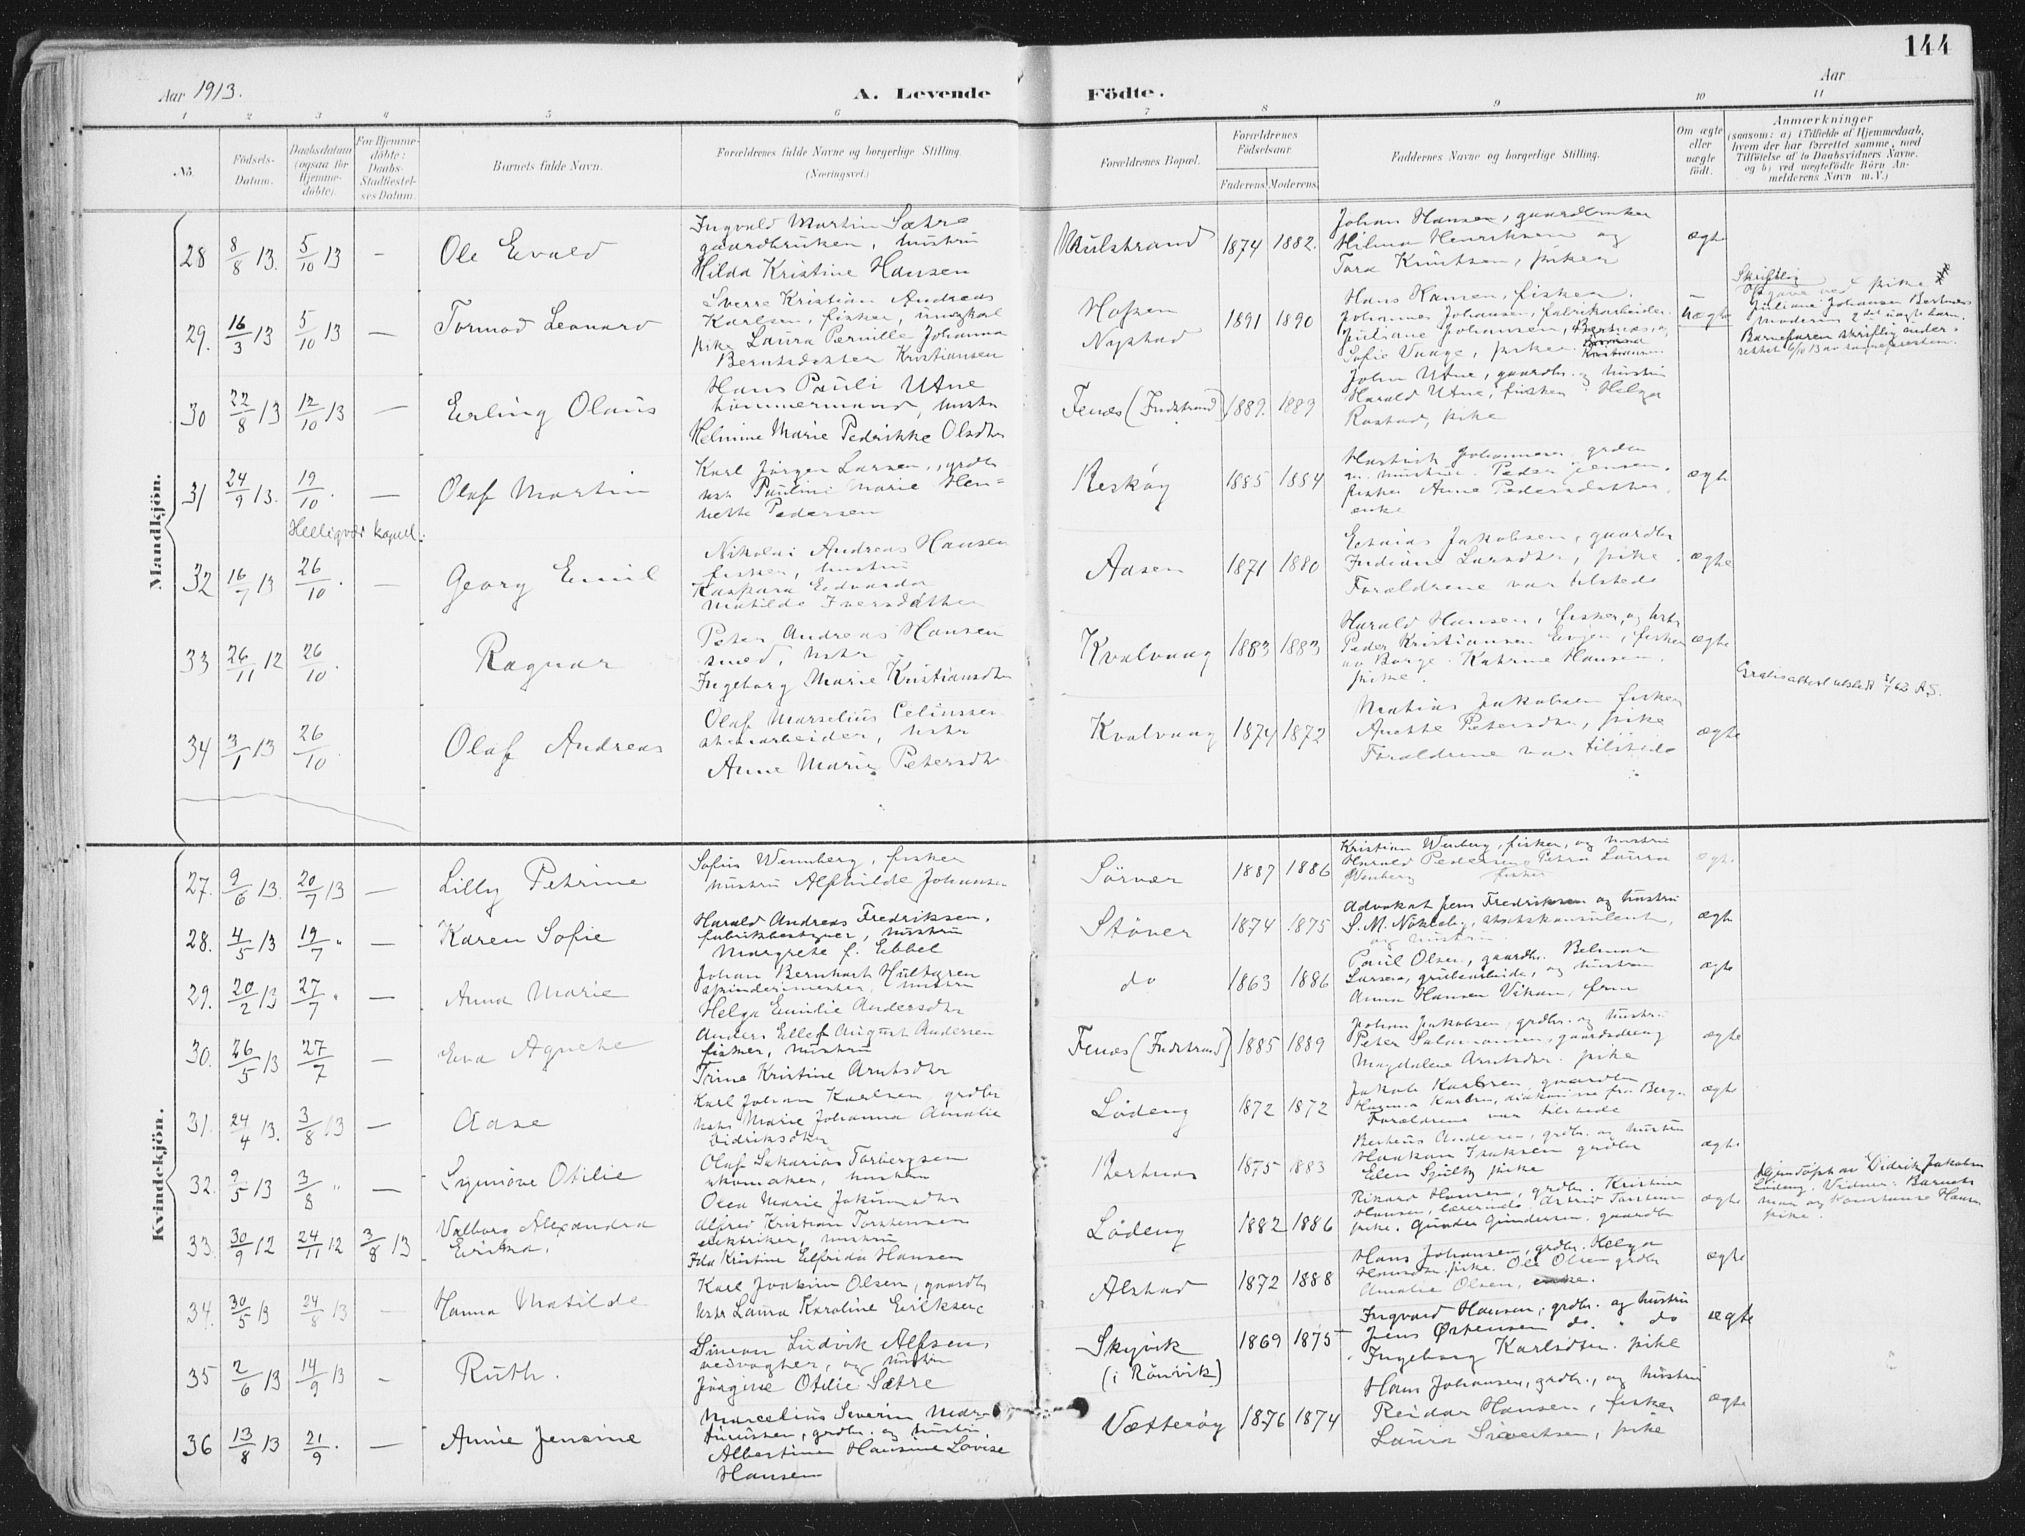 144
Aar 1913.
A. Levende Födte.
Aar
1 2 3 4 5 6 7 8 9 10 11
No.
Födsels-Datum.
Daabsdatum (ogsaa for Hjemmedöbte).
For Hjemmedöbte: Daabs-Stadfæstelses Datum.
Barnets fulde Navn.
Forældrenes fulde Navne og borgerlige Stilling.
(Næringsvei.)
Forældrenes Bopæl.
Forældrenes Födselsaar.
Faderens. Moderens.
Faddernes Navne og borgerlige Stilling.
Om ægte eller uægte födt.
Anmærkninger
(saasom: a) i Tilfælde af Hjemmedaab, hvem der har forrettet samme, med Tilföielse af to Daabsvidners Navne, og b) ved uægtefödte Börn Anmelderens Navn m.V.)
Mandkjön.
28 8/8 13. 5/10 13 — Ole Evald
Ingvald Martin Sætre
gaardbruker, hustru
Hilda Kristine Hansen
1874 1882.
Johan Hansen, gaardbruker
Hilma Henriksen og
Tora Knutsen, piker
ægte
29. 16/3 13 5/10 13 — Tormod Leonard
Sverre Kristian Andreas
Karlsen, fisker, ungkarl
pike Laura Pernille Johanna
Berntsdatter Kristiansen
Nystad
1891 1890
Hans Hansen, fisker.
Johannes Johansen, fabrikarbeider
Juliane Johansen, Bertnes, og
Sofie Vaage, piker
uægte
Skriftlig
Opgave ved pike
Juliane Johansen Bertnes
Moderens 2det uægte barn.
Barnefaren skriftlig under-
rettet 6/10 13 av sognepresten.
30 22/8 13 12/10 13 — Erling Olaus
Hans Pauli Utne
tömmermand, hustr
Helmine Marie Pedrikke Olsdtr
Fenes (Indstrand) 1889. 1889
John Utne, gaardbr. og hustru
Harald Utne, fisker. Helga
Rostad, pike
31 24/9 13. 19/10. — Olaf Martin
Karl Jörgen Larsen, grdbr
hstr Pauline Marie Hen=
riette Pedersen
1885 1884
Hartvik Johannesen, grdbr
og hustru. Peder Jensen,
fisker Anne Pedersdatter,
enke
ægte
Helligvær kapel.
32 16/7 13 26/10. — Georg Emil
Nikolai Andreas Hansen
fisker, hustru
Kaspara Edvarda
Matilde Iversdatter
Aasen 1871 1880
Esaias Jakobsen, gaardbr
Indiane Larsdtr, pike.
Forældrene var tilstede
ægte
33 26/11 12 26/10. Ragnar
Peter Andreas Hansen
smed, hstr
Ingeborg Marie Kristiansdtr
Kvalvaag 1883 1883
Harald Hansen, fisker, og hstr
Peder Kristiansen Engen, fisker
av Borge. Katrine Hansen,
pike.
ægte
Gratisattest utstedt
34 3/1 13 26/10. Olaf Andreas
Olaf Marselius Celiussen
stenarbeider, hstr
Anne Marie Petersdtr
Kvalvaag 1874 1872
Matias Jakobsen fisker
Anette Petersdtr, pike
Forældrene var tilstede
ægte
Kvindekjön.
27. 9/6 13. 20/7 13 — Lilly Petrine
Sofus Wennberg, fisker
hustru Alfhilde Johansen
Sörvær 1887 1886
Kristian Wenberg, fisker, og hustru
Harald Pedersen, Petra Laura
Wenberg fisker
ægte
28. 4/5 13 19/7 " — Karen Sofie
Harald Andreas Fredriksen,
fabrikbestyrer, hustru
Margrete f. Ebbel
Stöver 1874 1875
Advokat Jens Fredriksen og hustru
S. M. Nökleby, statskonsulent,
og hustru.
ægte
29. 20/2 13 27/7 " — Anna Marie
Johan Bernhart Hultgren
spinderimester, hustru
Helga Emilie Andersdtr
do 1863 1886
Paul Olsen, gaardbr. Belmar
Larsen, grubearbeider, og hustru
Anna Hansen Vikan, frue
ægte
30. 26/5 13 27/7 — Eva Agnete
Anders Ellef August Andersen
fisker, hustru
Trine Kristine Arntsdtr
Fenes (Indstrand) 1885 1889
Johan Jakobsen, grdbr. og hustr.
Peter Salamonsen, gaardsdreng
Magdalene Arntsdtr. pike
ægte
31. 24/4 13. 3/8 13 — Aase
Karl Johan Karlsen, grdbr
hstr Marie Johanna Amalie
Didriksdtr
Löding 1872 1872
Jakob Karlsen, gaardbr
Forældrene var tilstede
ægte
32. 9/5 13 3/8 " — Synnöve Otilie
Olaf Sakarias Torbergsen
skomaker, hustru
Olea Marie Jakumsdtr
Bertnes 1875 1883
Berteus Andersen, grdbr. og hustru
Haakon Isaksen grdbr
Elen Sjulby pike
ægte
33. 30/9 12 24/11 12 3/8 13 Valborg Alexandra
Erika.
Alfred Kristian Torstensen
elektriker, hustru
Ida Kristine Elfrida Hansen
Löding 1882 1886
Rikard Hansen, grdbr. Kristine
Hansen, lærerinde, Astrid Torstensen
pike. Gunder Gundersen. gaardbr
ægte
Hjemdöpt av Didrik Jakobsen
Löding. Vidner: Barnets
mor og Konstanse Hansen
pike.
34. 30/5 13 24/8 13 — Hanna Matilde
Karl Joakim Olsen, gaardbr
hstr Laura Karoline Eriksen
Alstad 1872 1888
Hans Johansen, grdbr. Helga
Hansdtr. pike. Ole Olsen grdbr
Amalie Olsen,
ægte
35 2/6 13 14/9 13 — Ruth.
Simon Ludvik Alfsen
veivogter, og hustru
Jörgine Otilie Sætre
Skivik
(i Rönvik)
1869 1875
Ingvard Hansen, grdbr. og hustru
Jens Örtensen do. " do
Ingeborg Karlsdtr. pike
ægte
36 13/8 13 21/9. — Annie Jensine
Marcelius Severin Mor-
tinussen, grdbr. og hustru,
Albertine Hansine Lovise
Hansen
Vætteröy 1876 1874
Hans Johansen, grdbr., og hustru
Reidar Hansen, fisker
Laura Sivertsen, pike
ægte